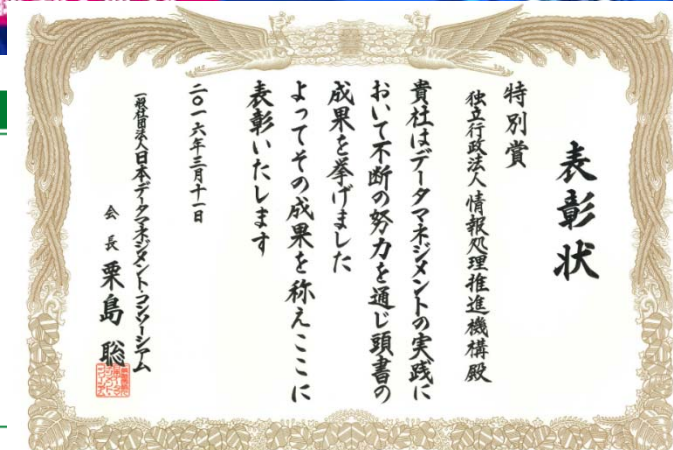 表彰状
特別賞
独立行政法人情報処理推進機構殿
貴社はデータマネジメントの実践に
おいて不断の努力を通じ頭書の
成果を挙げました
よってその成果を称えここに
表彰いたします
二〇一六年三月十一日
一般社団法人日本データマネジメント・コンソーシアム
会長 栗島 聡